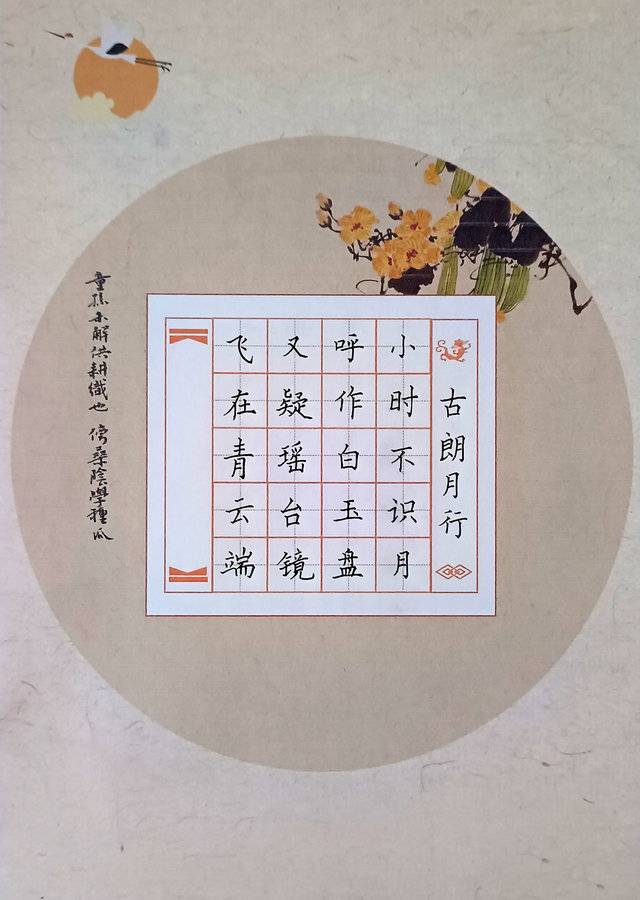 古朗月行
小时不识月
呼作白玉盘
又疑瑶台镜
飞在青云端
童孫未解供耕織也傍桑陰學種瓜